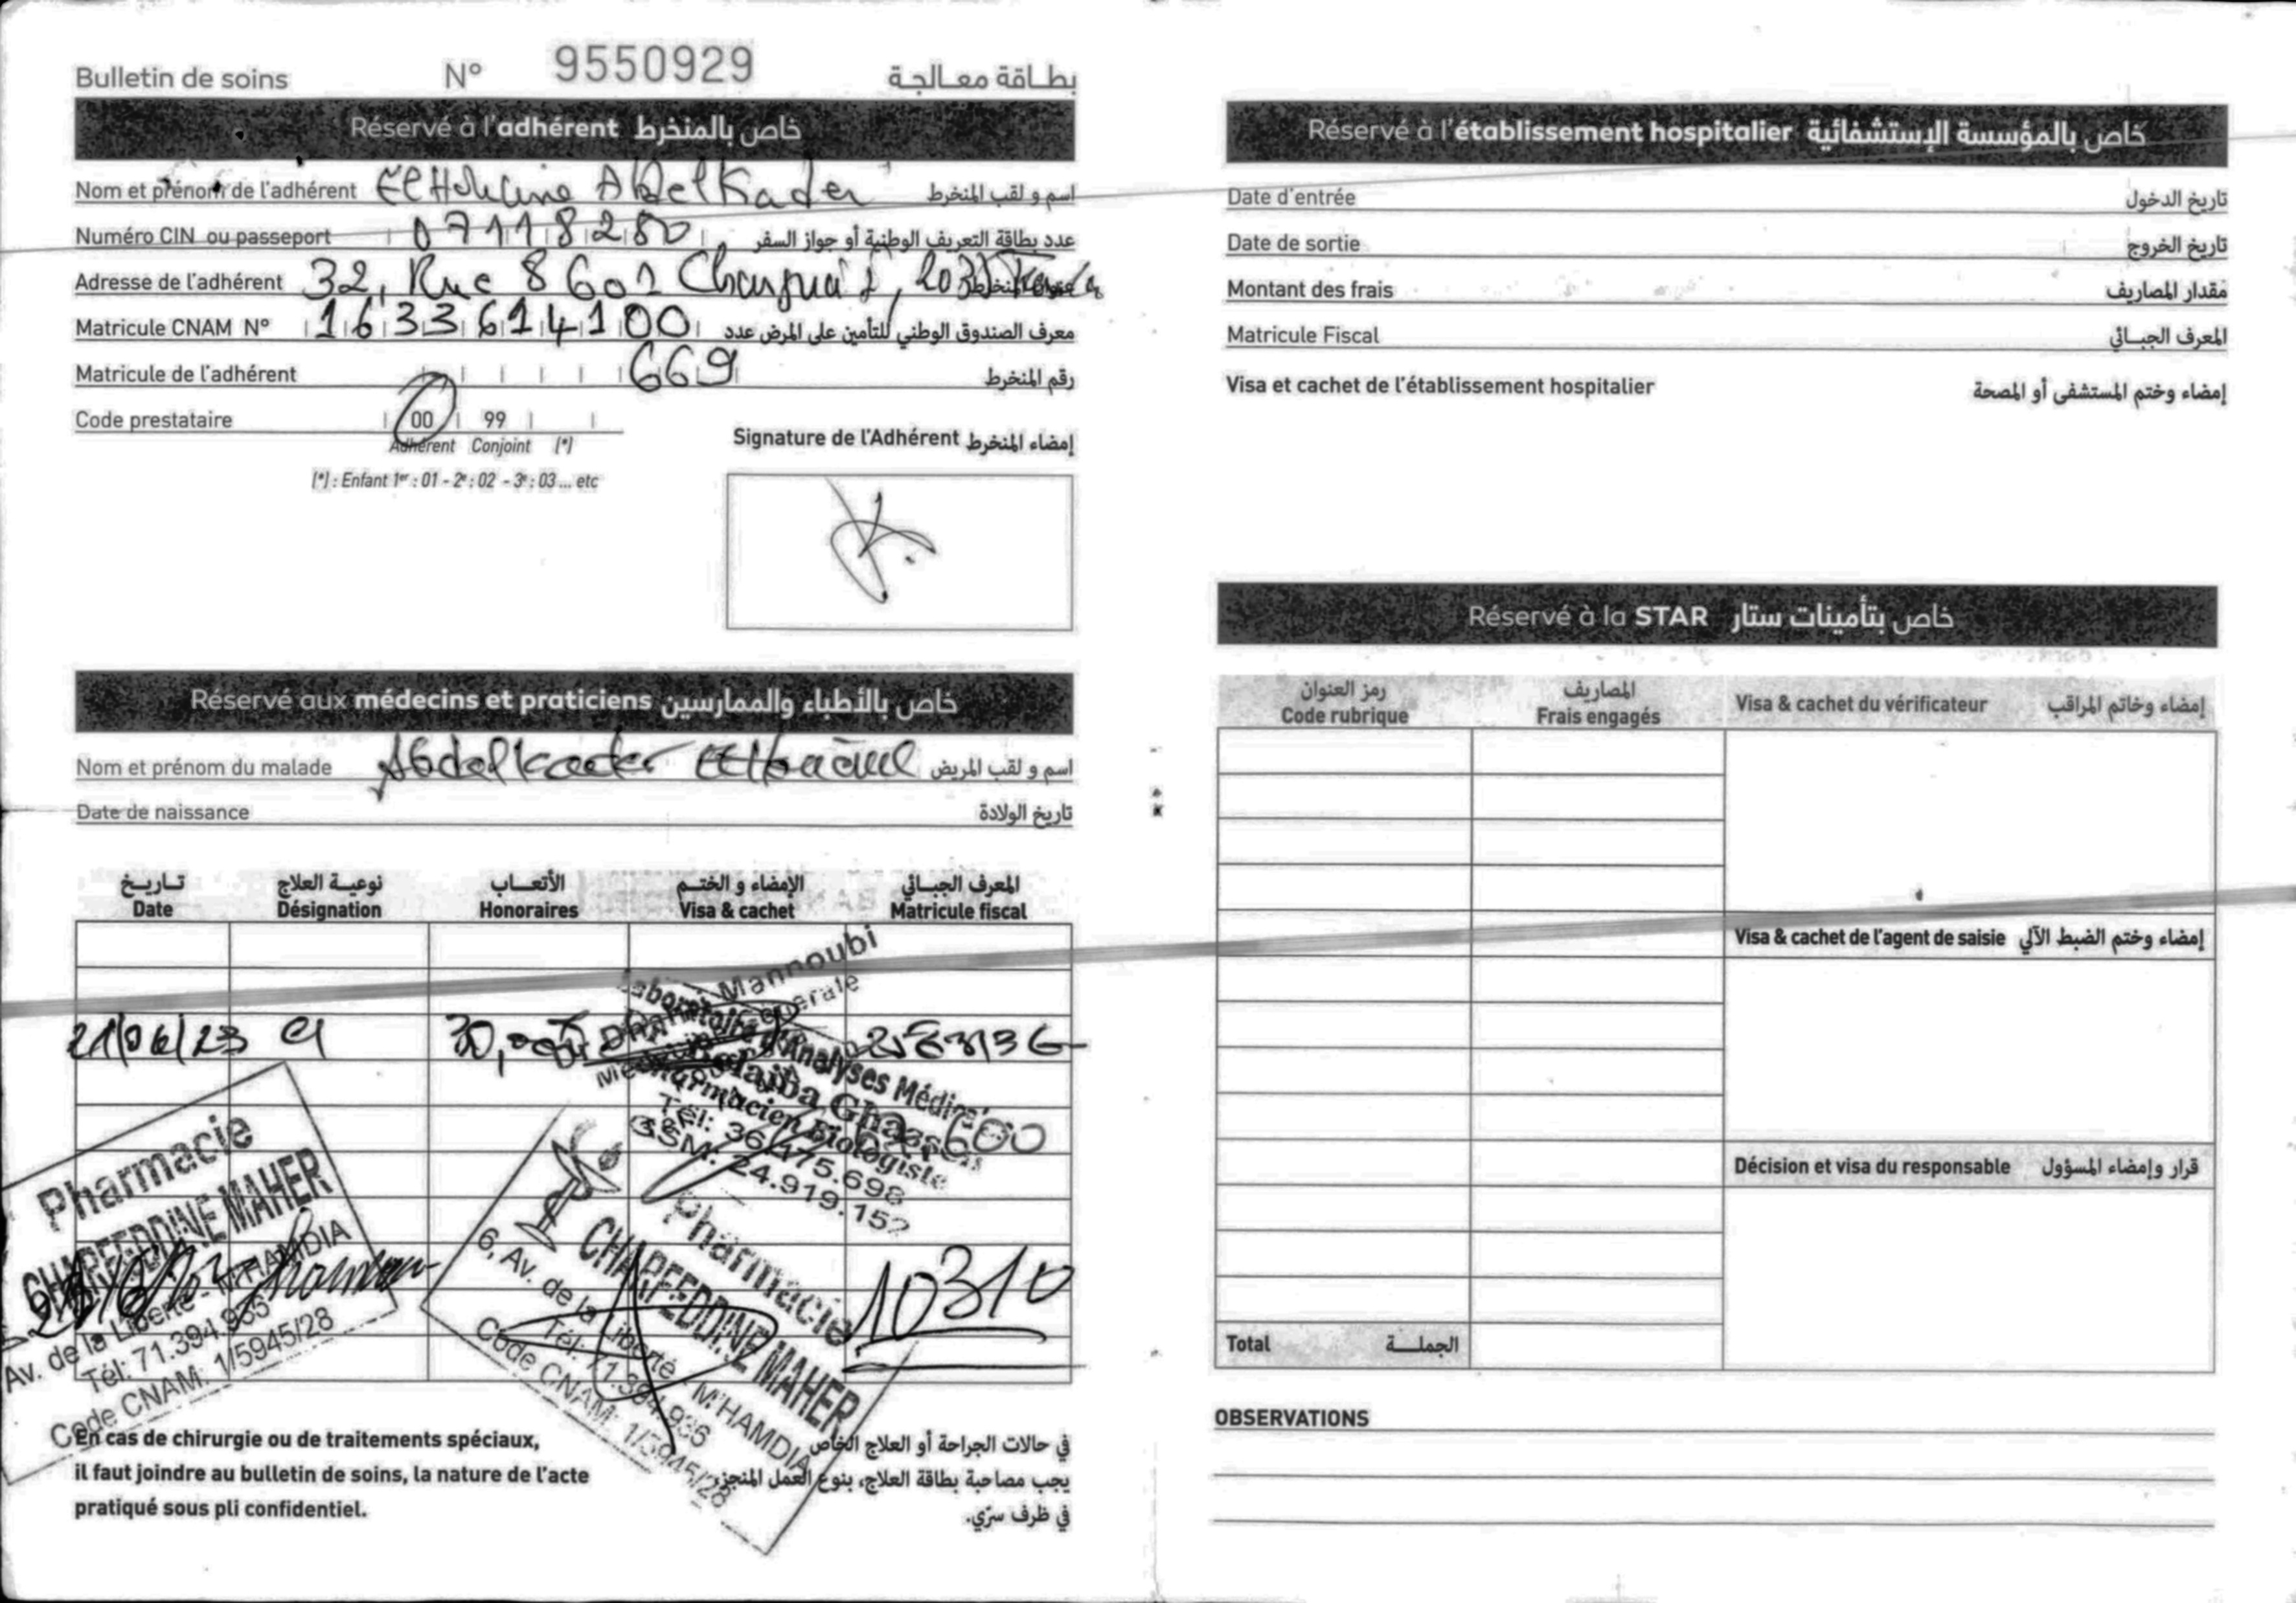 Bulletin de soins N° 9550929 بطاقة معالجة
Réservé à l'adhérent خاص بالمنخرط
Nom et prénom de l'adhérent Abdelkader اسم و لقب المنخرط
Numéro CIN ou passeport 07118280 عدد بطاقة التعريف الوطنية أو جواز السفر
Adresse de l'adhérent 32, Rue 8601
Matricule CNAM N° 1633614100 معرف الصندوق الوطني للتأمين على المرض عدد
Matricule de l'adhérent 669 رقم المنخرط
Code prestataire 00 99
Adhérent Conjoint (*)
(*) : Enfant 1er : 01 - 2e : 02 - 3e : 03 ... etc
Signature de l'Adhérent إمضاء المنخرط
Réservé aux médecins et praticiens خاص بالأطباء والممارسين
Nom et prénom du malade Abdelkader اسم و لقب المريض
Date de naissance تاريخ الولادة
تاريخ نوعية العلاج الأتعاب الإمضاء و الختم المعرف الجبائي
Date Désignation Honoraires Visa & cachet Matricule fiscal
21/06/23 C1 30,000
Mannoubi
Laboratoire d'Analyses Médicales
Pharmacien Biologiste
Tél: 36.475.698
GSM: 24.919.152
600
Pharmacie
CHARFEDDINE MAHER
Av. de la Liberté - M'HAMDIA
Tél: 71.394.936
Code CNAM: 1/5945/28
Pharmacie
CHARFEDDINE MAHER
6, Av. de la Liberté - M'HAMDIA
Tél: 71.394.936
Code CNAM: 1/5945/28
10310
En cas de chirurgie ou de traitements spéciaux,
il faut joindre au bulletin de soins, la nature de l'acte
pratiqué sous pli confidentiel.
في حالات الجراحة أو العلاج الخاص
يجب مصاحبة بطاقة العلاج، بنوع العمل المنجز
في ظرف سرّي.
Réservé à l'établissement hospitalier خاص بالمؤسسة الإستشفائية
Date d'entrée تاريخ الدخول
Date de sortie تاريخ الخروج
Montant des frais مقدار المصاريف
Matricule Fiscal المعرف الجبائي
Visa et cachet de l'établissement hospitalier إمضاء وختم المستشفى أو المصحة
Réservé à la STAR خاص بتأمينات ستار
رمز العنوان المصاريف
Code rubrique Frais engagés Visa & cachet du vérificateur إمضاء وخاتم المراقب
Visa & cachet de l'agent de saisie إمضاء وختم الضبط الآلي
Décision et visa du responsable قرار وإمضاء المسؤول
Total الجملة
OBSERVATIONS